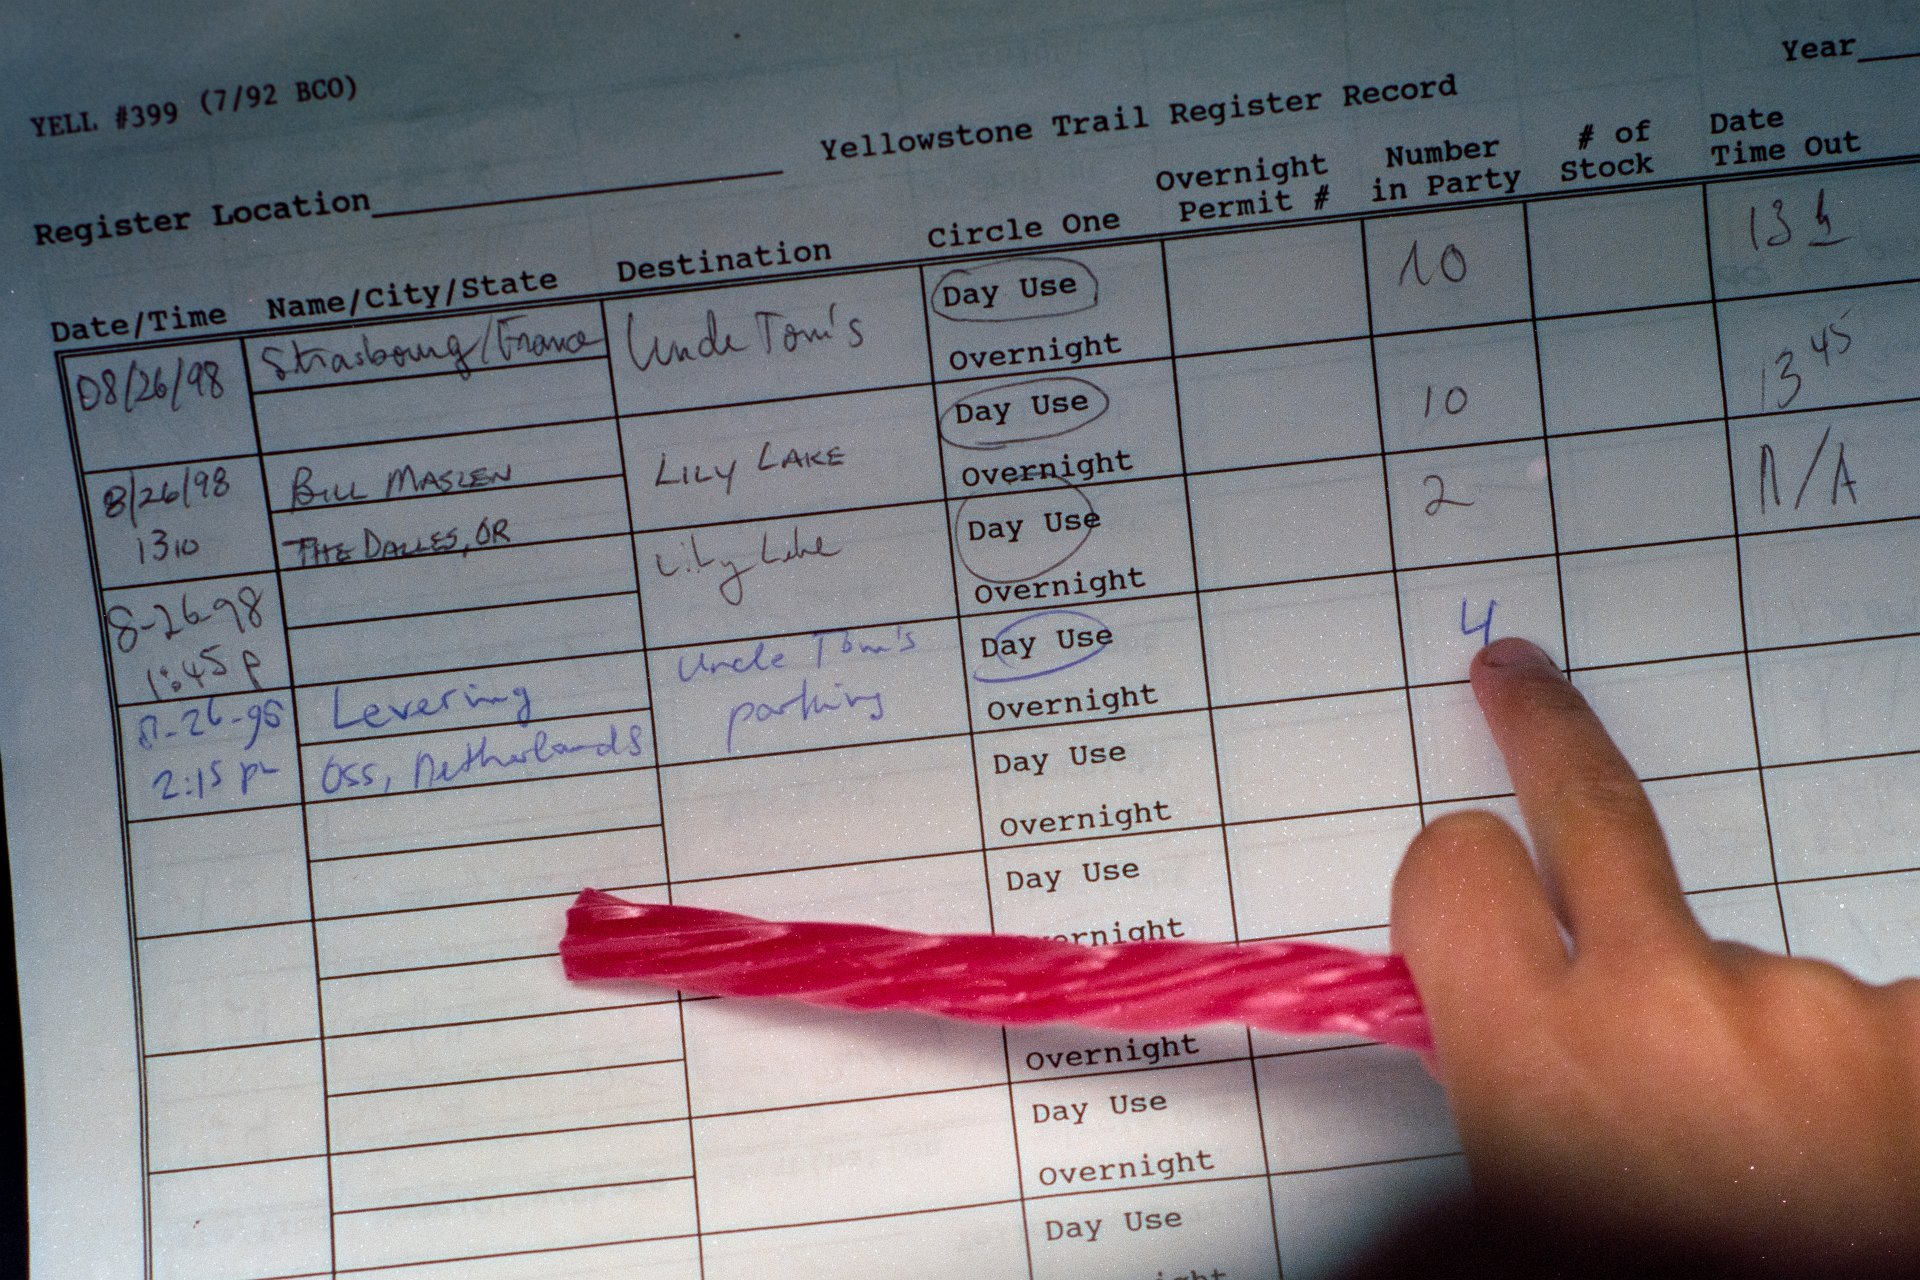 YELL #399 (7/92 BCO)
Year
Yellowstone Trail Register Record
Register Location
Date/Time Name/City/State Destination Circle One Overnight Permit # Number in Party # of Stock Date Time Out
08/26/98 Strasbourg/France Uncle Tom's Day Use 10 13 h
Overnight
8/26/98 BILL MASLEN LILY LAKE Day Use 10 13 45
1310 THE DALLES, OR Overnight
8-26-98 Lily Lake Day Use 2 N/A
1:45 p Overnight
8-26-98 Levering Uncle Tom's Day Use 4
2:15 pm Oss, Netherlands parking Overnight
Day Use
Overnight
Day Use
ernight
Overnight
Day Use
Overnight
Day Use